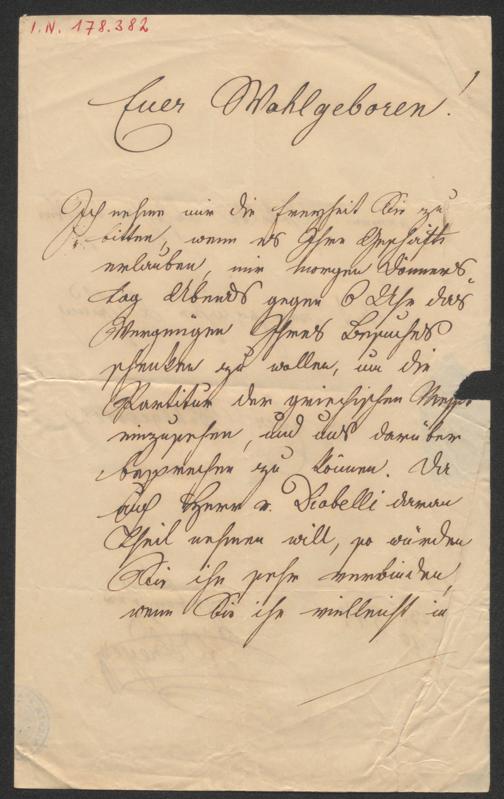 I.N. 178.382
Euer Wohlgeboren!
Ich nehme mir die Freyheit Sie zu
bitten, wenn es Ihre Geschäfte
erlauben, mir morgen Donners
tag Abends gegen 6 Uhr das
Vergnügen Ihres Besuches
schenken zu wollen, um die
Partitur der griechischen Messe
einzusehen, und uns darüber
besprechen zu können. Da
auch Herr v. Diabelli daran
Theil nehmen will, so würden
Sie ihn sehr verbinden,
wenn Sie ihn vielleicht in